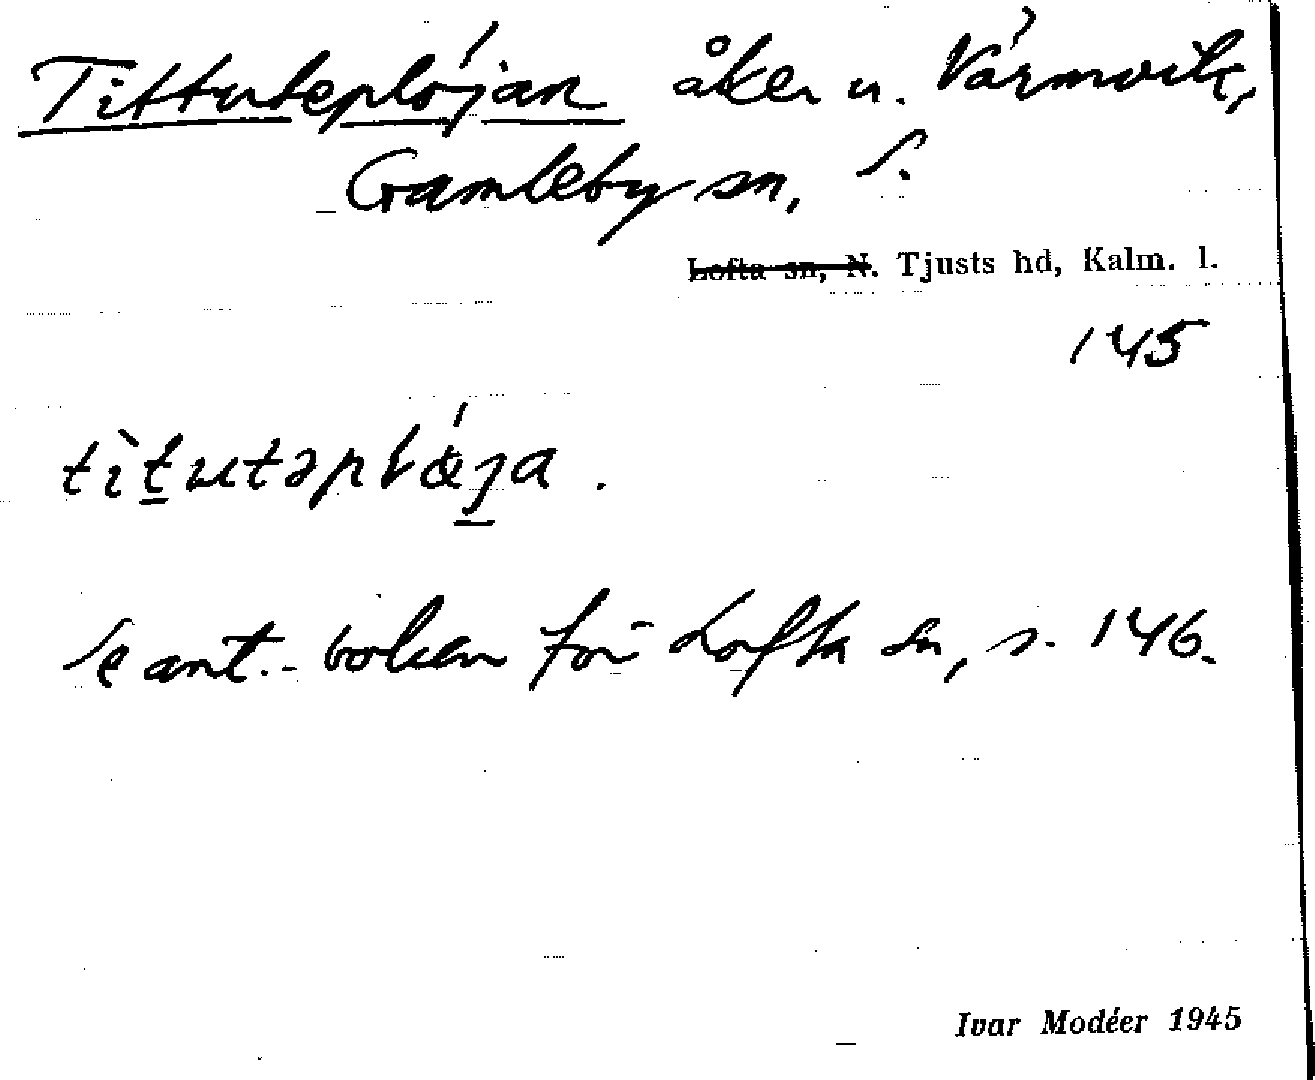 Tittuteplöjan åker u. Vårmvik,
Gamleby sn, S.
Lofta sn, N. Tjusts hd, Kalm. l.
145
Se ant.-boken för Lofta sn, s. 146.
Ivar Modéer 1945